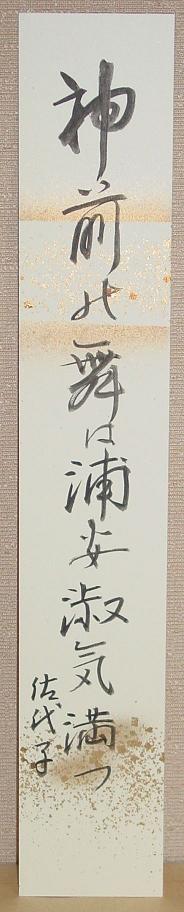 神前の舞は浦安淑気満つ
佐代子